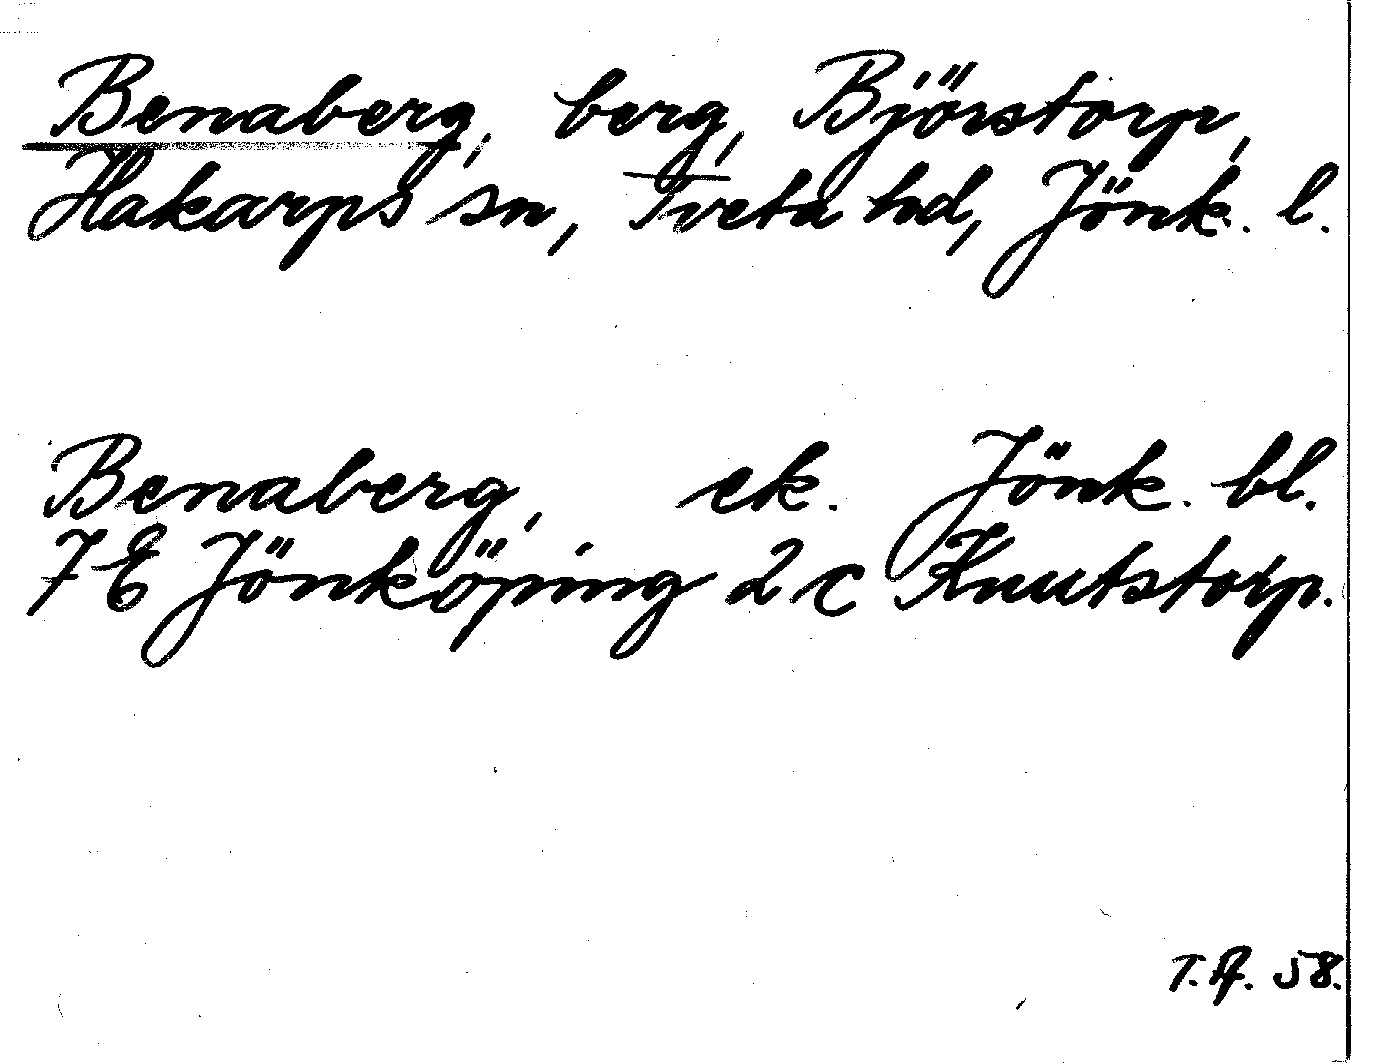 Benaberg, berg, Björstorp,
Hakarps sn, Tveta hd, Jönk. l.
Benaberg, ek. Jönk. bl.
7E Jönköping 2c Knutstorp.
T.A. 58.